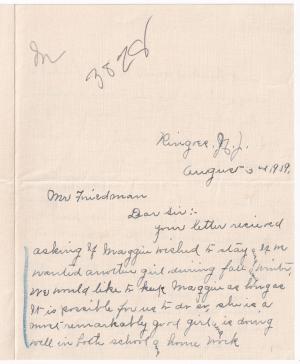 In
3828
Kingree, N. J.
August 24 1919.
Mr Friedman
Dear Sir:-
Your letter recieved
asking if Maggie wished to stay & if we
wanted another girl during fall & winter,
we would like to keep Maggie as long as
it is possible for us to do so, she is a
most remarkably good girl & is doing
well in both school & home work